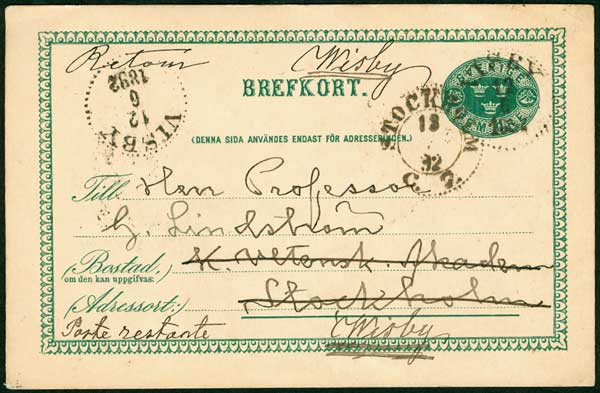 Retour Wisby
BREFKORT.
SVERIGE
FEM ÖRE
VISBY
12
6
1892
STOCKHOLM
13
92
(DENNA SIDA ANVÄNDES ENDAST FÖR ADRESSERINGEN.)
Till Herr Professor
G. Lindström
(Bostad, K. Vetensk. Akadem
om den kan uppgifvas:)
(Adressort:) Stockholm
Poste restante Wisby